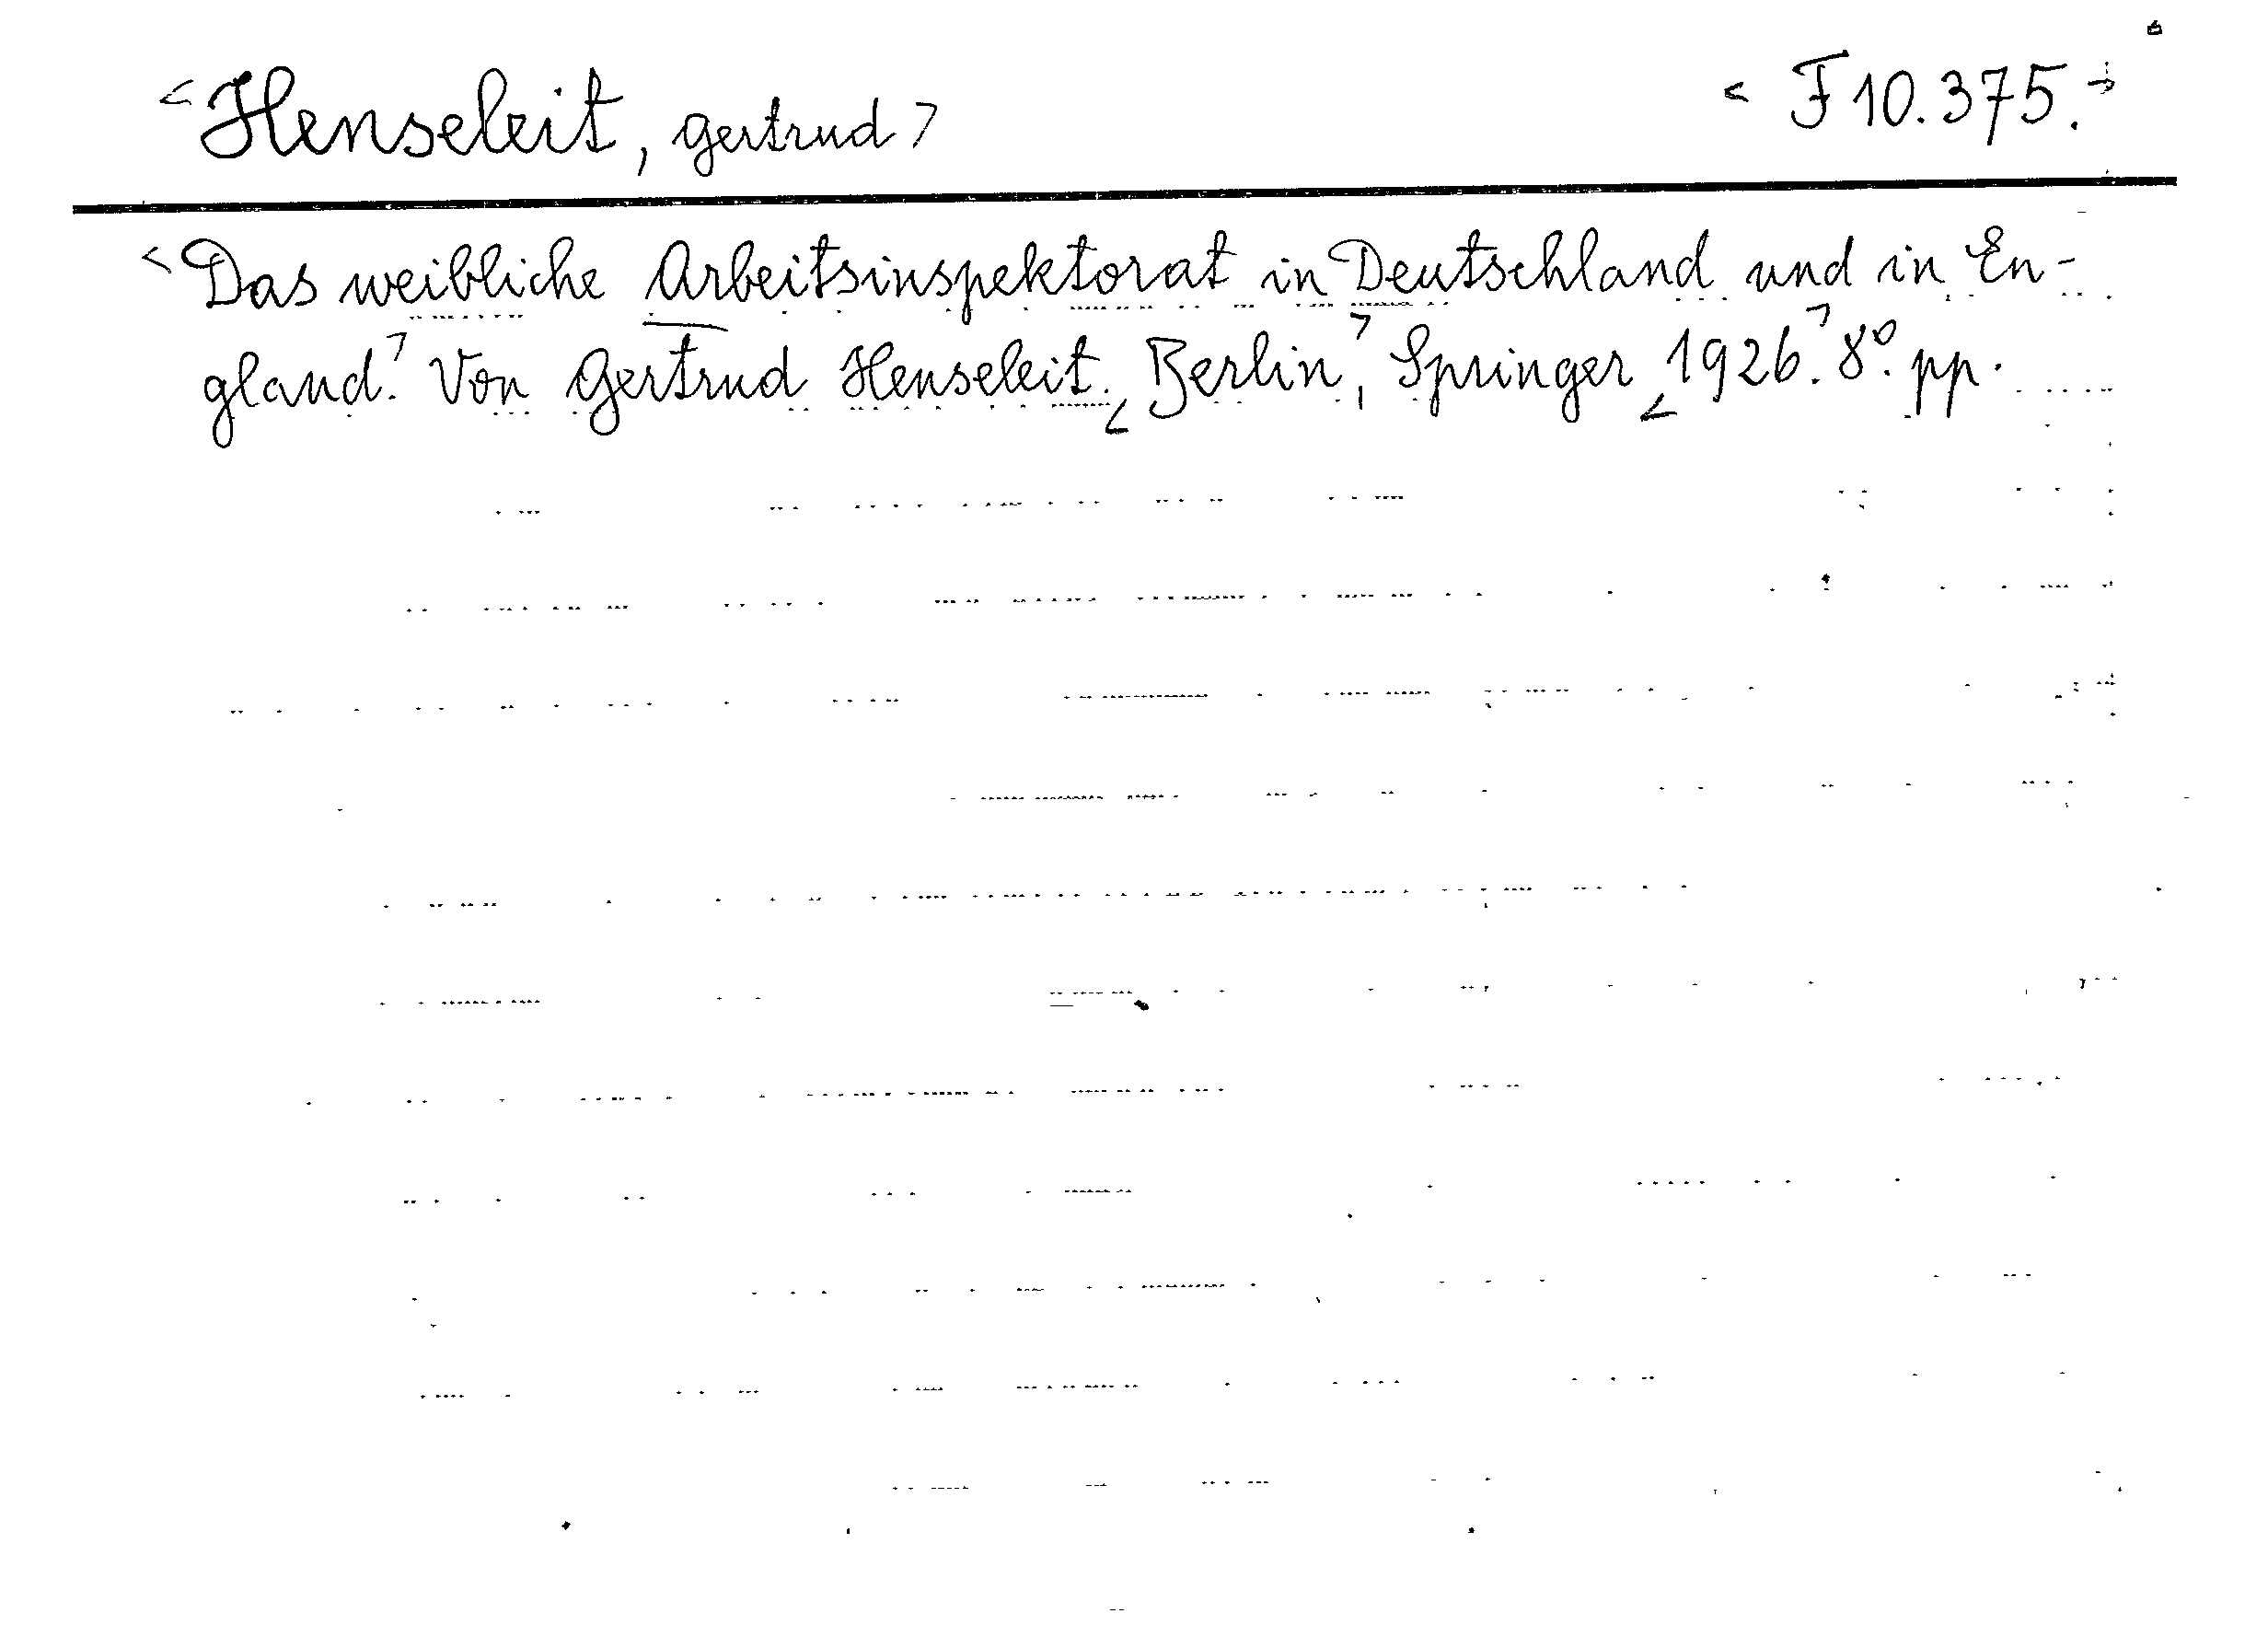 <Henseleit, Gertrud> <F 10.375.>
<Das weibliche Arbeitsinspektorat in Deutschland und in En-
gland.> Von Gertrud Henseleit. <Berlin>, Springer <1926.> 8º. pp.